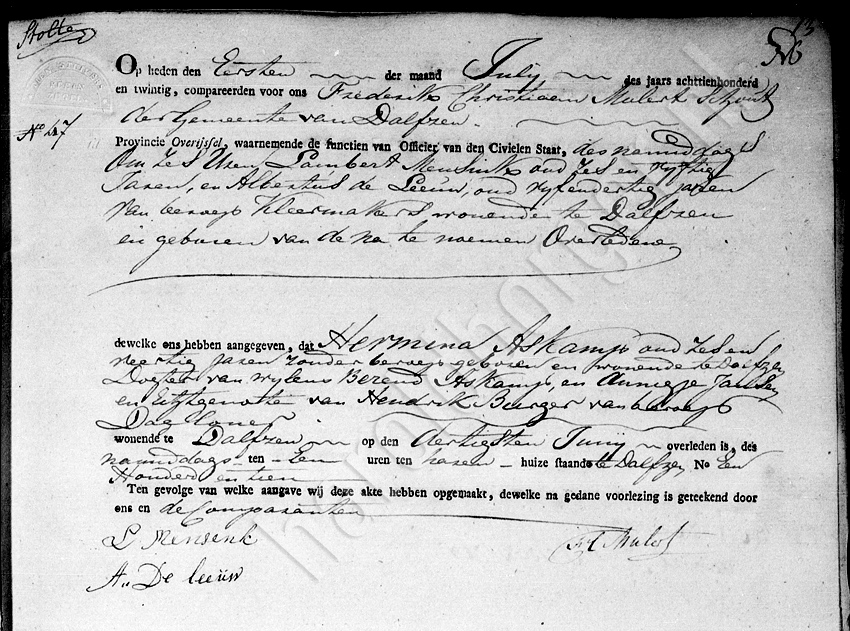 Stolte
Op heden den Eersten der maand July des jaars achttienhonderd
en twintig, compareerden voor ons Frederik Christiaan Mulert Schout
der Gemeente van Dalfzen
No 47
Provincie Overijssel, waarnemende de functien van Officier van den Civielen Staat, des namiddags
Om zes Uren Lambert Mensink oud zes en vyftig
Jaren, en Albertus de Leeuw, oud vyfendertig jaren
van beroep Kleermakers, wonende te Dalfzen
en geburen van de na te noemen Overledene
dewelke ons hebben aangegeven, dat Hermina Askamp oud zes en
veertig jaren zonder beroep geboren en wonende te Dalfzen
Dogter van wylens Berend Askamp, en Annigje Jansen
en Echtgenothe van Hendrik Burger van beroep
Dag loner
wonende te Dalfzen op den dertigsten Juny overleden is, des
namiddags ten Een uren ten haren huize staande te Dalfzen No Een
Honderd en tien
Ten gevolge van welke aangave wij deze akte hebben opgemaakt, dewelke na gedane voorlezing is geteekend door
ons en de Comparanten
L Mensink
A. De Leeüw